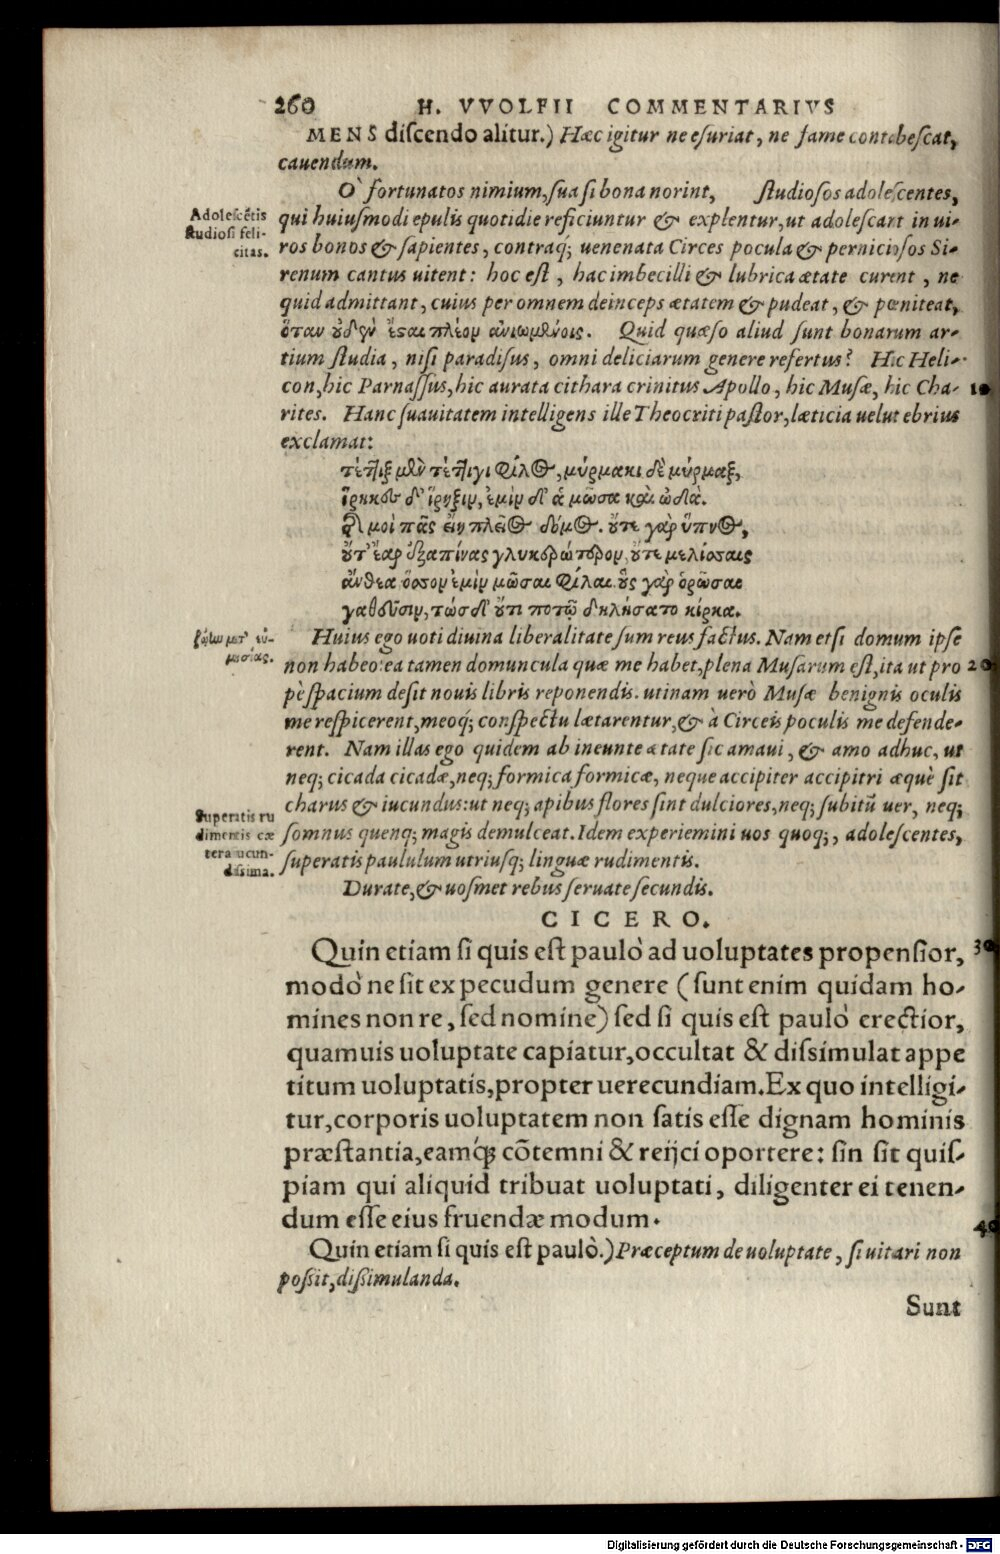 260 H. VVOLFII COMMENTARIVS
MENS discendo alitur.) Hæc igitur ne esuriat, ne fame contabescat,
cauendum.
O` fortunatos nimium, sua si bona norint, studiosos adolescentes,
Adolescẽtis
studiosi feli-
citas.
qui huiusmodi epulis quotidie reficiuntur & explentur, ut adolescant in ui-
ros bonos & sapientes, contraq; uenenata Circes pocula & perniciosos Si-
renum cantus uitent: hoc est, hac imbecilli & lubrica ætate curent, ne
quid admittant, cuius per omnem deinceps ætatem & pudeat, & pœniteat,
ὅταν ὐδὲν ἔσαι πλέον ἀνιωμένοις. Quid quæso aliud sunt bonarum ar-
tium studia, nisi paradisus, omni deliciarum genere refertus? Hic Heli-
con, hic Parnassus, hic aurata cithara crinitus Apollo, hic Musæ, hic Cha- 10
rites. Hanc suauitatem intelligens ille Theocriti pastor, læticia uelut ebrius
exclamat:
τέτ]ιξ μὲν τέτ]ιγι φίλος, μύρμακι δὲ μύρμαξ,
ἵρηκες δ' ἵρηξιν, ἐμὶν δ' ἁ μῶσα καὶ ᾠδά.
τᾶς μοι πᾶς εἴη πλεῖος δόμος. οὔτε γὰρ ὕπνος,
οὔτ' ἔαρ ἐξαπίνας γλυκερώτερον, οὔτε μελίσσαις
ἄνθεα ὅσσον ἐμὶν μῶσαι φίλαι. ὓς γὰρ ὁρῶσαι
γαθεῦσιν, τὼς δ' οὔτι ποτῷ δηλήσατο κίρκα.
Huius ego uoti diuina liberalitate sum reus factus. Nam etsi domum ipse
non habeo: ea tamen domuncula quæ me habet, plena Musarum est, ita ut pro 20
pè spacium desit nouis libris reponendis. utinam uerò Musæ benignis oculis
me respicerent, meoq; conspectu lætarentur, & à Circeis poculis me defende-
rent. Nam illas ego quidem ab ineunte ætate sic amaui, & amo adhuc, ut
neq; cicada cicadæ, neq; formica formicæ, neque accipiter accipitri æquè sit
charus & iucundus: ut neq; apibus flores sint dulciores, neq; subitũ uer, neq;
Superatis ru
dimentis cæ
tera iucun-
dissima.
somnus quenq; magis demulceat. Idem experiemini uos quoq;, adolescentes,
superatis paululum utriusq; linguæ rudimentis.
Durate, & uosmet rebus seruate secundis.
CICERO.
Quin etiam si quis est paulò ad uoluptates propensior, 30
modò ne sit ex pecudum genere (sunt enim quidam ho-
mines non re, sed nomine) sed si quis est paulò erectior,
quamuis uoluptate capiatur, occultat & dissimulat appe
titum uoluptatis, propter uerecundiam. Ex quo intelligi-
tur, corporis uoluptatem non satis esse dignam hominis
præstantia, eamq́; cõtemni & reijci oportere: sin sit quis-
piam qui aliquid tribuat uoluptati, diligenter ei tenen-
dum esse eius fruendæ modum. 40
Quin etiam si quis est paulò.) Præceptum de uoluptate, si uitari non
possit, dissimulanda.
Sunt
Digitalisierung gefördert durch die Deutsche Forschungsgemeinschaft - DFG